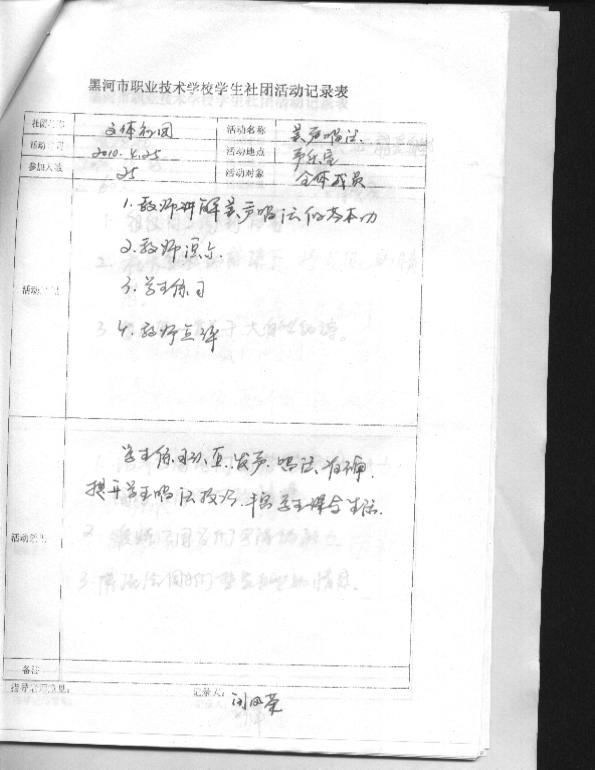 黑河市职业技术学校学生社团活动记录表
社团名称 文体社团 活动名称 美声唱法
活动时间 2010.4.25 活动地点 声乐室
参加人数 25 活动对象 全体成员
1.教师讲解美声唱法的基本功
2.教师演示
3.学生练习
4.教师点评
活动
学生练习认真,发声、唱法准确,
提升学生唱法技巧,丰富学生课余生活.
活动
备注
指导 意见: 记录人: